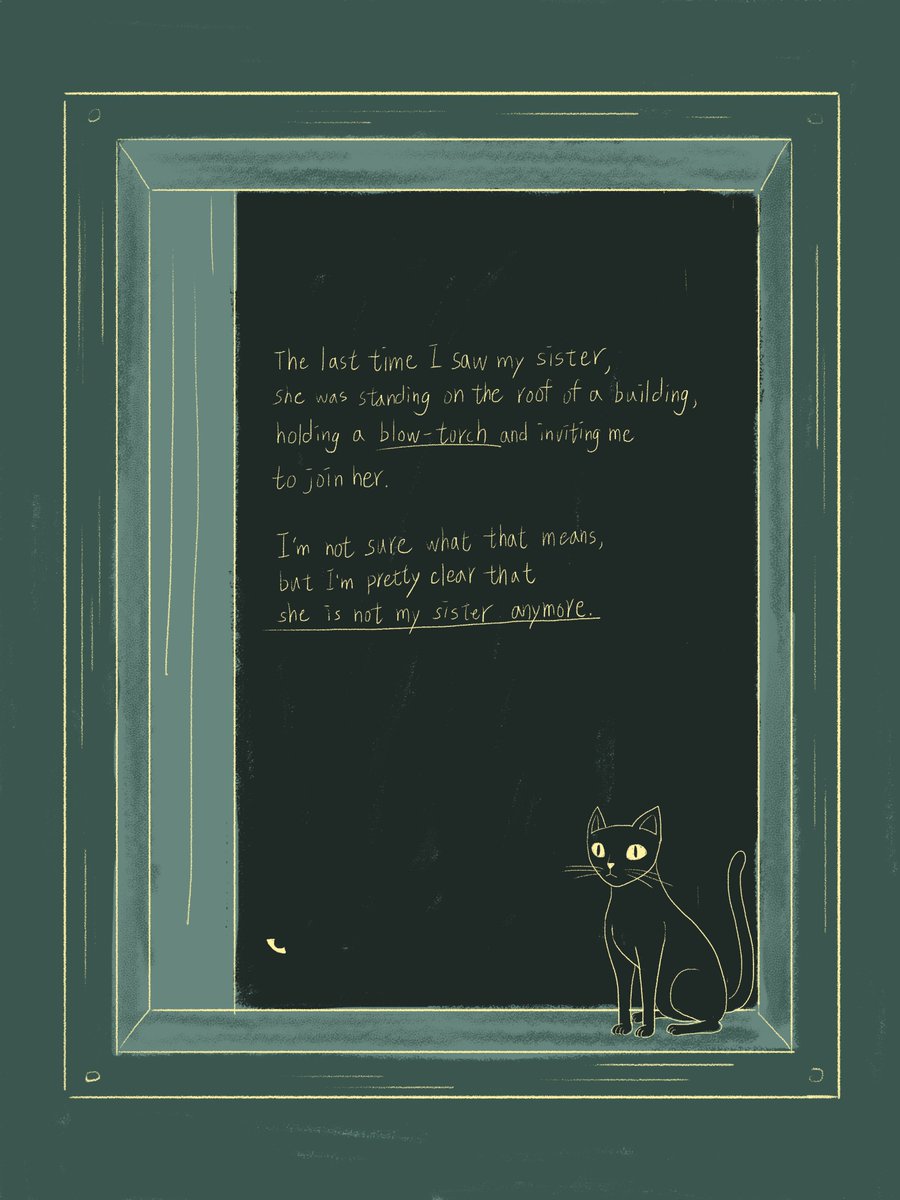 The last time I saw my sister,
she was standing on the roof of a building,
holding a blow-torch and inviting me
to join her.
I'm not sure what that means,
but I'm pretty clear that
she is not my sister anymore.